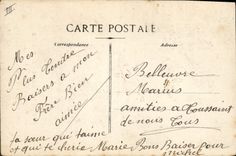 III
CARTE POSTALE
Correspondance
Adresse
Mes
Plus Tendre
Baisers a mon
Frère Bien
aimée
ta sœur qui t'aime
et qui te cherie Marie
Belleuvre
Marius
amities a Toussaint
de nous Tous
Bons Baiser pour
Michel